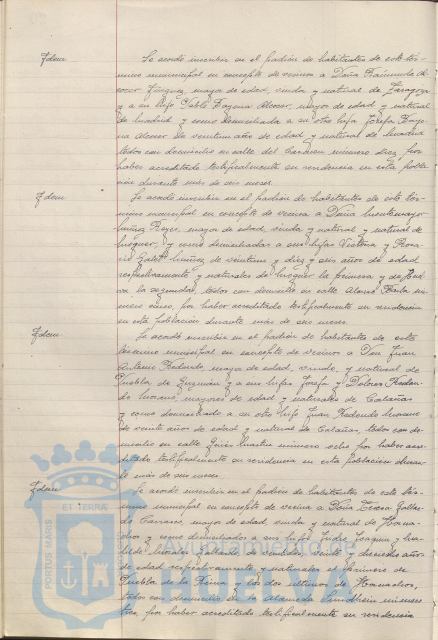 Idem Se acordó inscribir en el padrón de habitantes de este tér-
mino municipal en concepto de vecinos a Doña Raimunda Al-
cocer mayor de edad, viuda y natural de Zaragoza
y a su hijo Pablo Alcocer, mayor de edad y natural
de Madrid y como domiciliada a su otra hija Josefa
Alcocer de veintiun años de edad y natural de Madrid
todos con domicilio en calle del Carmen número diez, por
haber acreditado testificalmente su residencia en esta pobla-
ción durante más de seis meses.
Idem Se acordó inscribir en el padrón de habitantes de este tér-
mino municipal en concepto de vecina a Doña
Muñoz Reyes, mayor de edad, viuda y natural y natural de
Moguer, y como domiciliadas a sus hijas Victoria y Rosa-
rio Muñoz de veintiuno y diez y seis años de edad
respectivamente y naturales de Moguer la primera y de
va la segunda, todos con domicilio en calle Alonso nú-
mero cinco, por haber acreditado testificalmente su residencia
en esta población durante más de seis meses.
Idem Se acordó inscribir en el padrón de habitantes de este
término municipal en concepto de vecinos a Don Juan
Antonio Redondo, mayor de edad, viudo, y natural de
Puebla de Guzmán y a sus hijas Josefa y Dolores Redon-
do mayores de edad y naturales de Calañas
y como domiciliado a su otro hijo Juan Redondo
de veinte años de edad y natural de Calañas, todos con do-
micilio en calle número ocho por haber acre-
ditado testificalmente su residencia en esta población duran-
te más de seis meses.
Idem Se acordó inscribir en el padrón de habitantes de este tér-
mino municipal en concepto de vecina a Doña Teresa Galla-
do mayor de edad viuda y natural de
y como domiciliados a sus hijos Joaquin y
Gallardo de veintidos, veinte y dieciseis años
de edad respectivamente y naturales el primero de
Puebla de la Reina y los dos ultimos de Hornachos,
todos con domicilio en la Alameda Sundheim número
tres, por haber acreditado testificalmente su residencia
ET TERRA
PORTUS MARIS
Ayuntamiento de